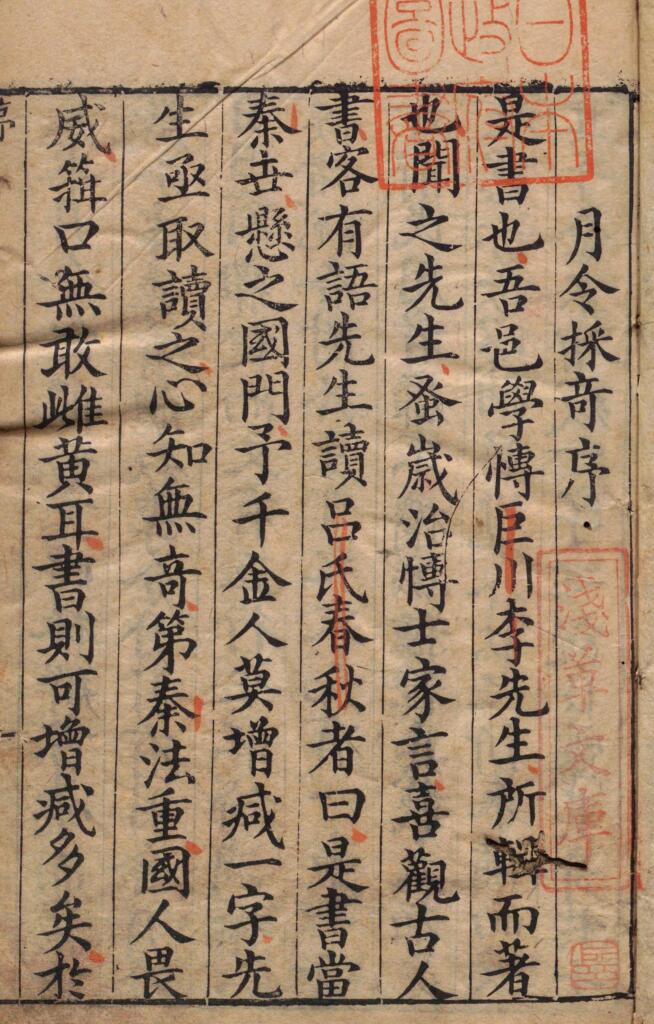 月令採奇序
是書也吾邑學博巨川李先生所輯而著
也聞之先生蚤歲治博士家言喜觀古人
書客有語先生讀呂氏春秋者曰是書當
秦世懸之國門予千金人莫增減一字先
生亟取讀之心知無奇第秦法重國人畏
威箝口無敢雌黄耳書則可增減多矣於
日本政府圖書
淺草文庫
序